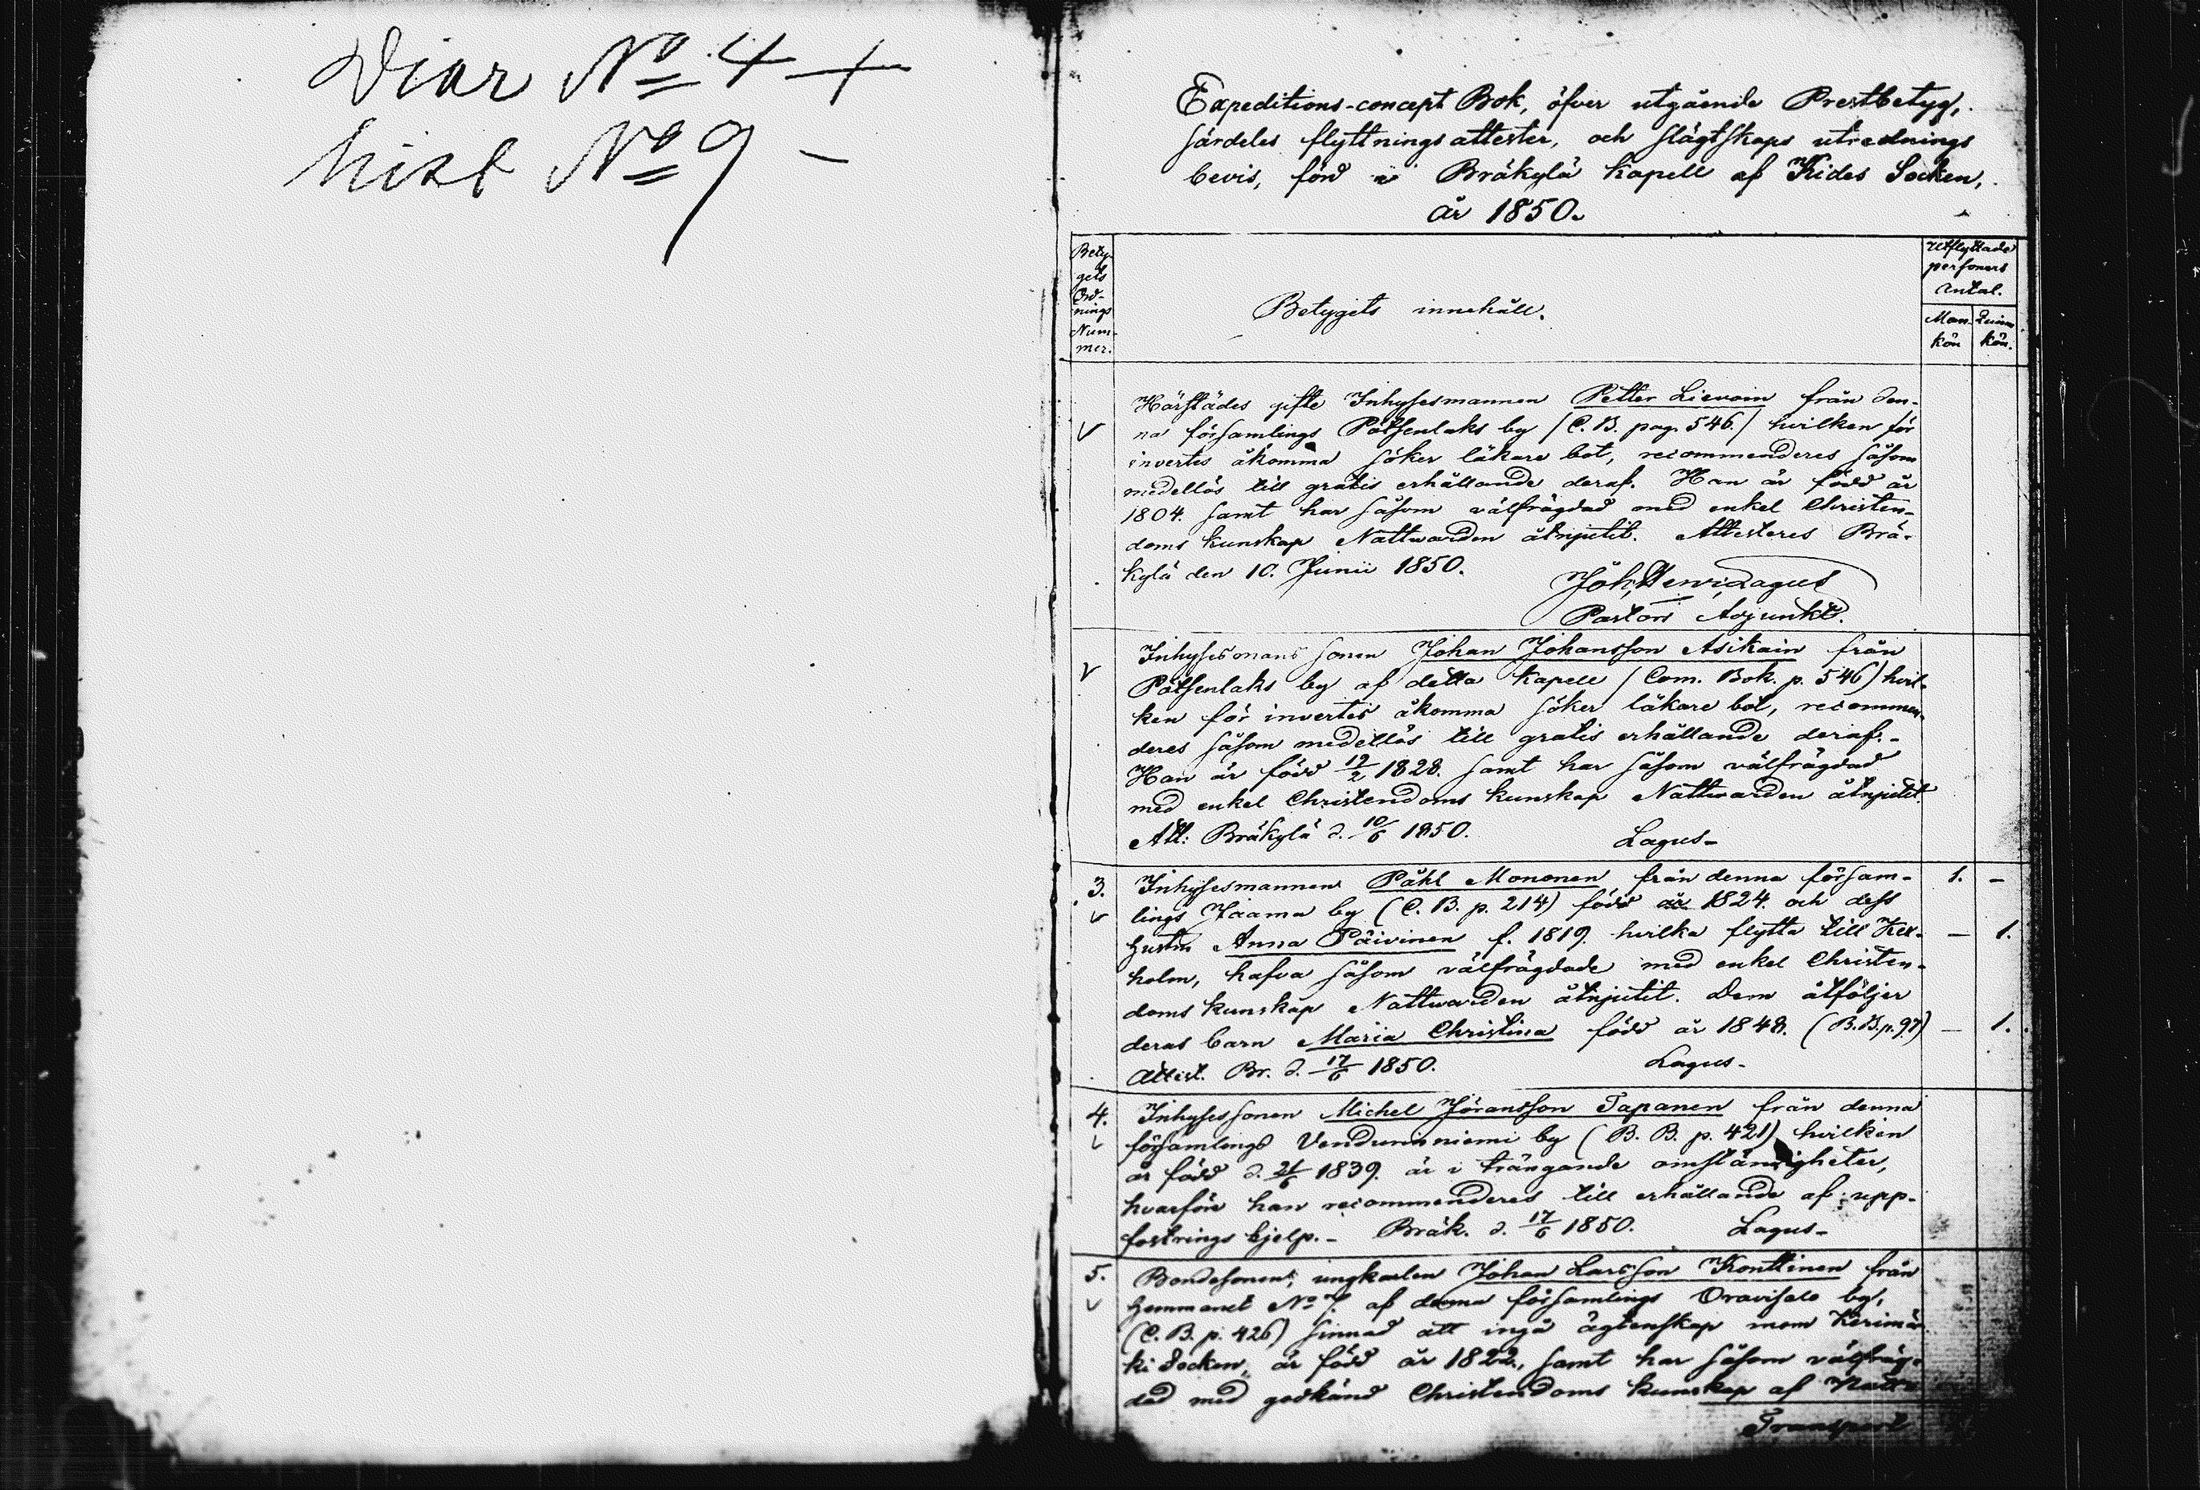 Diar No 4 +
hist No 9 –
Expeditions-concept Bok, öfver utgående Prestbetyg,
särdeles flyttningsattester, och slägtskaps utrednings
bevis, förd i Bräkylä Kapell af Kides Socken,
år 1850.
Bety-
gets
Ord-
nings
Num-
mer.
Betygets innehåll.
Utflyttade
personers
Antal.
Man-
kön
Quinn
kön.
Härstädes gifte Inhysesmannen Petter Lievoin från den-
na församlings Potsenlaks by (C. B. pag. 546.) hvilken för
invertes åkomma söker läkare bot, recommenderes såsom
medellös till gratis erhållande deraf. Han är född år
1804. samt har såsom välfrägdad med enkel Christen-
doms kunskap Nattvarden åtnjutit. Attesteres Brä-
kylä den 10. Junii 1850.
Joh. Henr. Lagus
Pastors Adjunkt.
Inhysesmans sonen Johan Johansson Asikain från
Potsenlaks by af detta Kapell (Com. Bok. p. 546) hvil-
ken för invertes åkomma söker läkare bot, recommen-
deres såsom medellös till gratis erhållande deraf.-
Han är född 12/2 1828. samt har såsom välfrägdad
med enkel Christendoms kunskap Nattvarden åtnjutit.
Att: Bräkylä d. 10/6 1850.
Lagus-
3. Inhysesmannen Påhl Mononen från denna försam- 1. –
lings Jaama by (C. B. p. 214) född år 1824. och dess
hustru Anna Päivinen f. 1819. hvilka flytta till Kex- – 1.
holm, hafva såsom välfrägdade med enkel Christen-
doms kunskap Nattvarden åtnjutit. Dem åtföljer
deras barn Maria Christina född år 1848. (B.B.p.97) – 1.
Attest. Br. d. 17/6 1850. Lagus-
4. Inhysessonen Michel Jöransson Tapanen från denna
församlings niemi by (B. B. p. 421) hvilken
är född d. 21/6 1839. är i trängande omständigheter,
hvarföre han recommenderes till erhållande af upp-
fostrings hjelp.- Bräk. d. 17/6 1850. Lagus-
5. Bondesonen, ungkarlen Johan Larsson Konttinen från
hemmanet No 7 af denna församlings Oravisalo by,
(C. B. p. 426) sinnad att ingå ägtenskap inom Kerimä-
ki Socken, är född år 1822, samt har såsom välfräg-
dad med godkänd Christendoms kunskap af Natt-
Transport